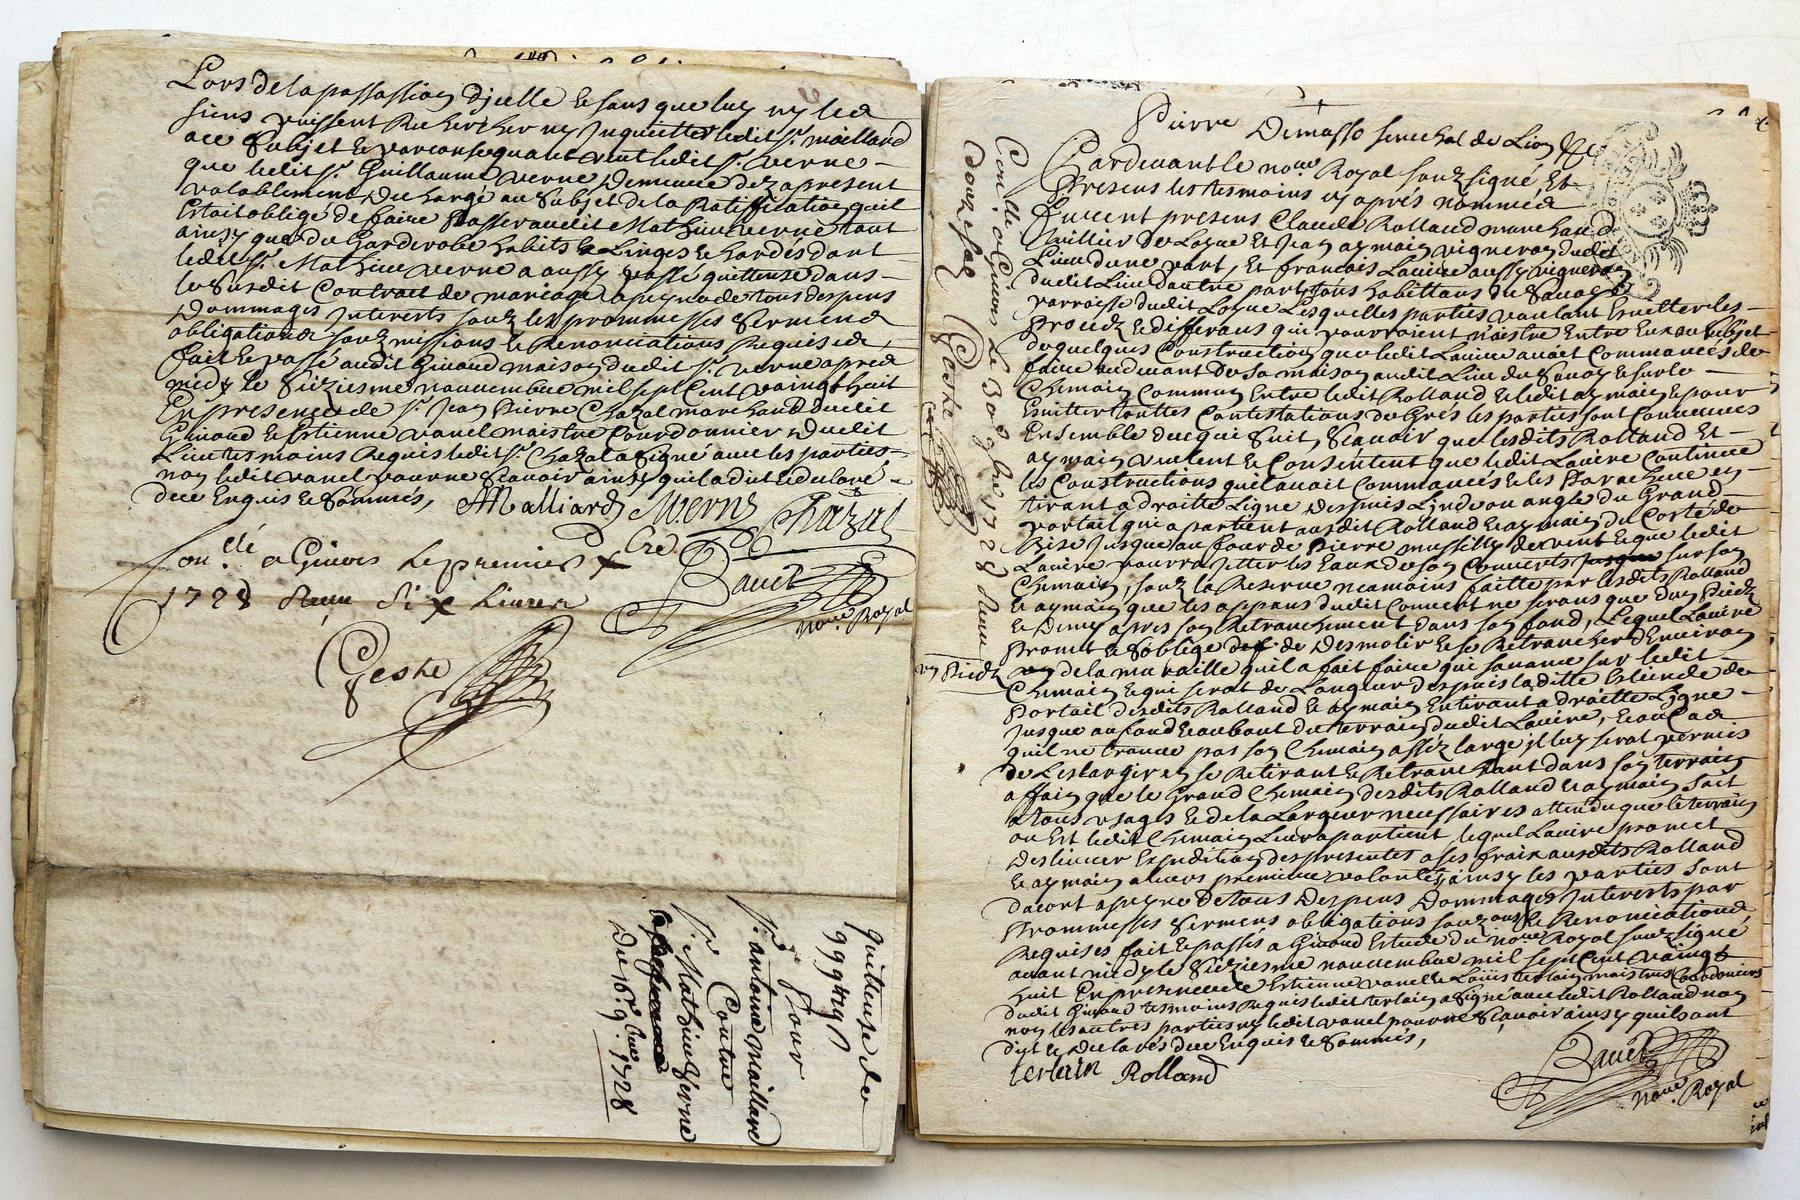 Lors de la passassion dicelle et sans que luy ny les
siens puissent Rechercher ny Inquietter ledit Sr. maillard
ace Subjet et par consequant tient ledit Sr. verne
que ledit Sr. Guillaume verne Demeure dez apresent
valablement decharge au Subjet de la Ratiffication quil
Estait obligé de faire passer audit Mathieu verne tant
ainsy que du Garderobe habits & Linges et hardes dont
ledit Sr. Mathieu verne a aussy passé quittense dans
le Susdit Contrat de mariage apeyne de tous despens
Dommages Interests souz les prommesses Serments
obligations souz missions et Renonciations Requises
fait et passé audit Givord maison dudit Sr. verne apred
midy le Sieziesme nouvembre mil sept Cent vaingt huit
En presence de Sr. Jean Pierre Chazal marchand dudit
Givord et Estienne vanel maistre Courdonnier dudit
Lieu tesmoins Requis ledit Sr. Chazal a signé avec les parties
non ledit vanel pour ne Scavoir ainsy quil a dit et declaré
dece Enquis et Sommés,
AMalliard MVerne Chazal
Con.llé a Givors le premier xbre
1728 Reçu Six Livres
Bauct
noue. Royal
Geshe
quittense de
pour
Sr. antoine maillard
Contre
Sr. Mathieu Verne
Du 16e. 9bre 1728
Pierre Dimasso senechal de Lion &c
Con.llé a Givors le 30e 9bre 1728 Reçu
douze sols Geshe
Pardevant le noue. Royal souzsigné, Et
Presens les tesmoins cy aprés nommés
furent presens Claude Rolland marchand
Lieu dune part, Et francois Laviere aussy vigneron
dudit Lieu Dautre part, tous habittans du Savoy
parroisse dudit Loyre Lesquelles parties voulant Eviter les
Procez et differans qui pourraient naistre Entre Eux au Subjet
de quelques Construction que ledit Laviere auait Commancés de
faire au devant de sa maison audit Lieu du Savoy et sur le
Chemain Commun Entre ledit Rolland et ledit aymain et pour
Eviter touttes Contestations de Grés les parties sont Convenues
Ensemble de ce qui Suit, Scavoir que lesdits Rolland Et
aymain veulent et Consentent que ledit Laviere Continue
les Constructions quil auait Commancés et les Paracheve en
tirant a droitte Ligne Despuis Lindevou angle du Grand
portail qui apartient ausdit Rolland et aymain du Costé de
Bise Jusque au four de Pierre et que ledit
Laviere pourra Jetter les Eaux de son Couverts sur son
Chemain, souz la Reserve neamoins faitte par lesdits Rolland
et aymain que les appans dudit Couvert ne serons que dun Piedz
et Demy apres son Retranchement dans son fond, Lequel Laviere
Promet et soblige de Desmolir et se Retrancher Denviron
un Piedz
de la muraille quil a fait faire qui sauance sur ledit
Chemain et qui serat de Longueur despuis laditte Estiende de
Portail desdits Rolland et aymain En tirant a droitte Ligne
Jusque au fond et au bout du terrain dudit Laviere, Et au Cas
quil ne trouve pas son Chemain assez large il luy serat permis
de Leslargir en se Retirant et Retranchant dans son terrain
affain que le Grand Chemain desdits Rolland et aymain soit
a tous usages et de la Largeur necessaires attendu que le terrain
ou Est ledit Chemain Leur apartient, lequel Laviere promet
Deslivrer Expedition des presentes a ses fraix ausdits Rolland
et aymain a leurs premiere volontés, ainsy les parties sont
dacort apeyne de tous Despens Dommages Interests par
Prommesses Sermens obligations souz et Renonciations
Requises fait et passés a Givord Estude du noue. Royal souz signe
avant midy le Sieziesme nouvembre mil sept Cent vaingt
huit En presence de Estienne vanel et Louis terlain maistres Cordoniers
dudit Givord tesmoins Requis ledit terlain a Signé avec ledit Rolland non
les autres parties ny ledit vanel pour ne Scavoir ainsy quils ont
dit et Declarés dece Enquis et Sommés,
terlain Rolland
Bauct
noue. Royal